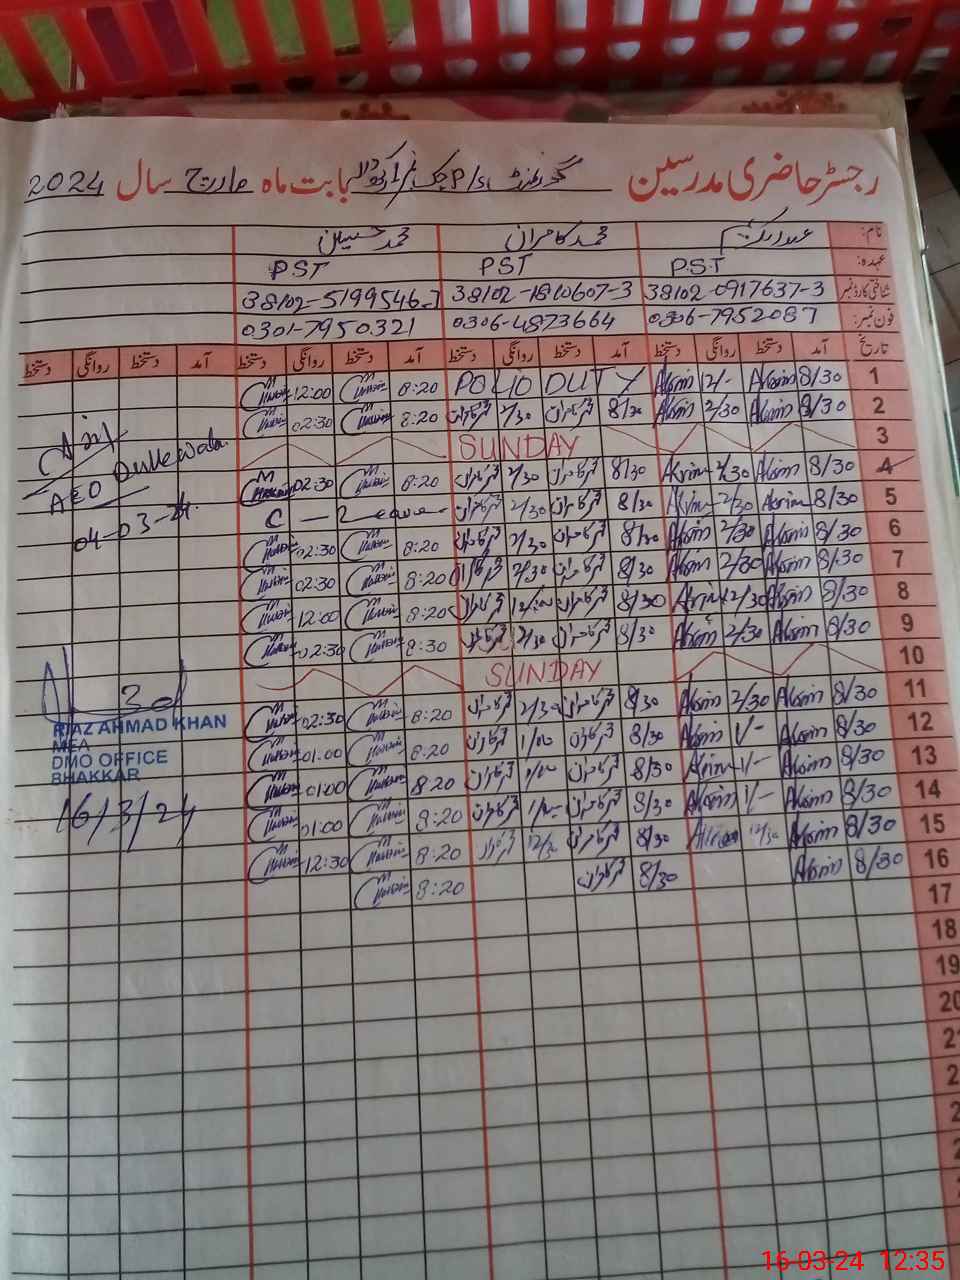 رجسٹر حاضری مدرسین گورنمنٹ P/S چک نمبر 1 بابت ماہ مارچ سال 2024
نام: محمد کامران محمد حسین
عہدہ: PST PST PST
شناختی کارڈ نمبر 38102-0917637-3 38102-1810607-3 38102-5199546-
فون نمبر: 0306-7952087 0306-4873664 0301-7950321
تاریخ آمد دستخط روانگی دستخط آمد دستخط روانگی دستخط آمد دستخط روانگی دستخط آمد دستخط روانگی دستخط
1 8/30 Akrim 12/- Akrim POLIO DUTY 8:20 Hussain 12:00 Hussain
2 8/30 Akrim 2/30 Akrim 8/30 محمد کامران 2/30 محمد کامران 8:20 Hussain 02:30 Hussain
3 SUNDAY
4 8/30 Akrim 2/30 Akrim 8/30 محمد کامران 2/30 محمد کامران 8:20 Hussain 02:30 Hussain
5 8/30 Akrim 2/30 Akrim 8/30 محمد کامران 2/30 محمد کامران C - Leave
6 8/30 Akrim 2/30 Akrim 8/30 محمد کامران 2/30 محمد کامران 8:20 Hussain 02:30 Hussain
7 8/30 Akrim 2/30 Akrim 8/30 محمد کامران 2/30 محمد کامران 8:20 Hussain 02:30 Hussain
8 8/30 Akrim 12/30 Akrim 8/30 محمد کامران محمد کامران 8:20 Hussain 12:00 Hussain
9 8/30 Akrim 2/30 Akrim 8/30 محمد کامران 2/30 محمد کامران 8:30 Hussain 02:30 Hussain
10 SUNDAY
11 8/30 Akrim 2/30 Akrim 8/30 محمد کامران 2/30 محمد کامران 8:20 Hussain 02:30 Hussain
12 8/30 Akrim 1/- Akrim 8/30 محمد کامران 1/00 محمد کامران 8:20 Hussain 01:00 Hussain
13 8/30 Akrim 1/- Akrim 8/30 محمد کامران 1/00 محمد کامران 8:20 Hussain 01:00 Hussain
14 8/30 Akrim 1/- Akrim 8/30 محمد کامران 1/00 محمد کامران 8:20 Hussain 01:00 Hussain
15 8/30 Akrim 12/30 Akrim 8/30 محمد کامران 12/30 محمد کامران 8:20 Hussain 12:30 Hussain
16 8/30 Akrim 8/30 محمد کامران 8:20 Hussain
17
18
19
20
AEO Dullewala
04-03-24
RIAZ AHMAD KHAN
MEA
DMO OFFICE
BHAKKAR
16/3/24
16-03-24 12:35